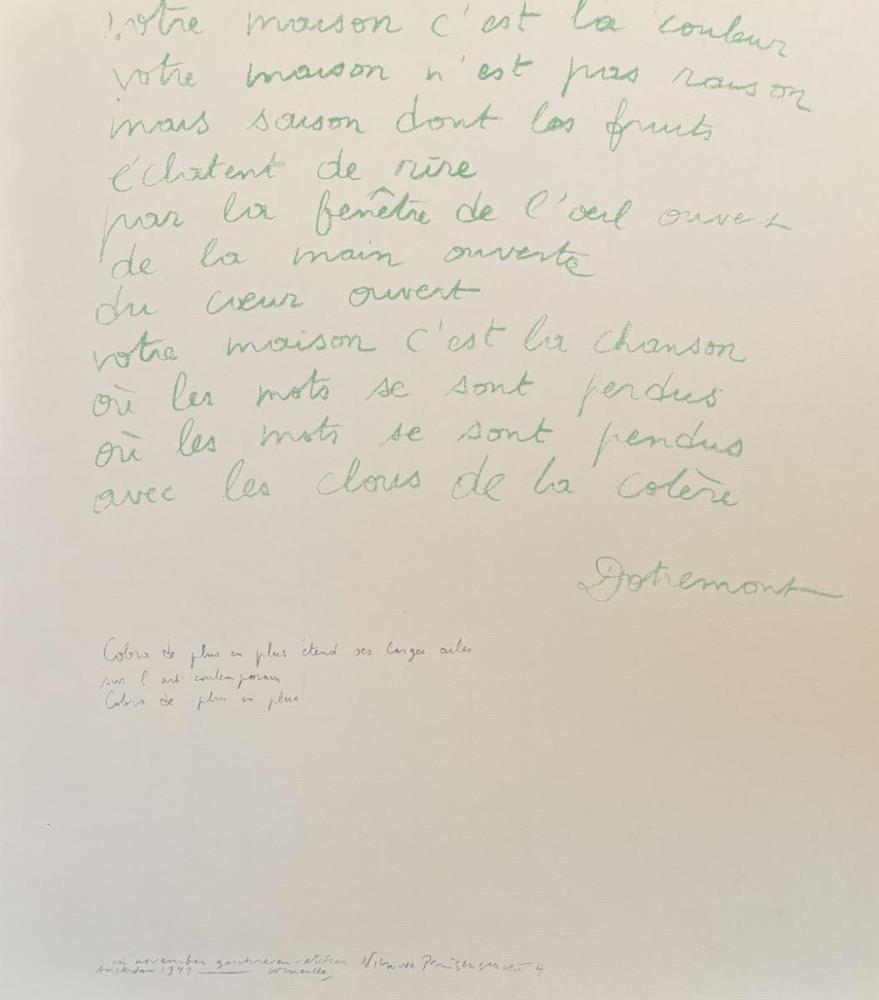 votre maison c'est la couleur
votre maison n'est pas raison
mais saison dont les fruits
éclatent de rire
par la fenêtre de l'oeil ouvert
de la main ouverte
du cœur ouvert
votre maison c'est la chanson
où les mots se sont perdus
où les mots se sont pendus
avec les clous de la colère
Dotremont
Cobra de plus en plus étend ses larges ailes
sur l'art contemporain
Cobra de plus en plus
in november geschreven atelier Nieuwe Prinsengracht 4
Amsterdam 1949 Corneille